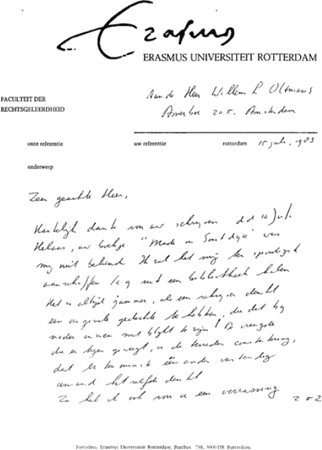 Erasmus
ERASMUS UNIVERSITEIT ROTTERDAM
FACULTEIT DER
RECHTSGELEERDHEID
Aan de Heer Willem L Oltmans
205. Amsterdam
onze referentie
uw referentie
rotterdam 15 juli, 1983
onderwerp
Zeer geachte Heer,
Hartelijk dank voor uw schrijven d.d. 10 juli.
Helaas, uw boekje "Made in Soestdijk" was
mij niet bekend. Ik zal het mij ten spoedigste
aanschaffen een bibliotheek halen
Het is altijd jammer, als een schrijver denkt
een originele gedachte te hebben, die dat bij
nader inzien niet blijkt te zijn! De vreugde
die er tegen, is de tevreden constatering,
dat er tenminste één ander verstandig
iemand hetzelfde denkt
Zo had ik ook een verrassing
z o z
Postadres: Erasmus Universiteit Rotterdam, Postbus 738, 3000 DR Rotterdam